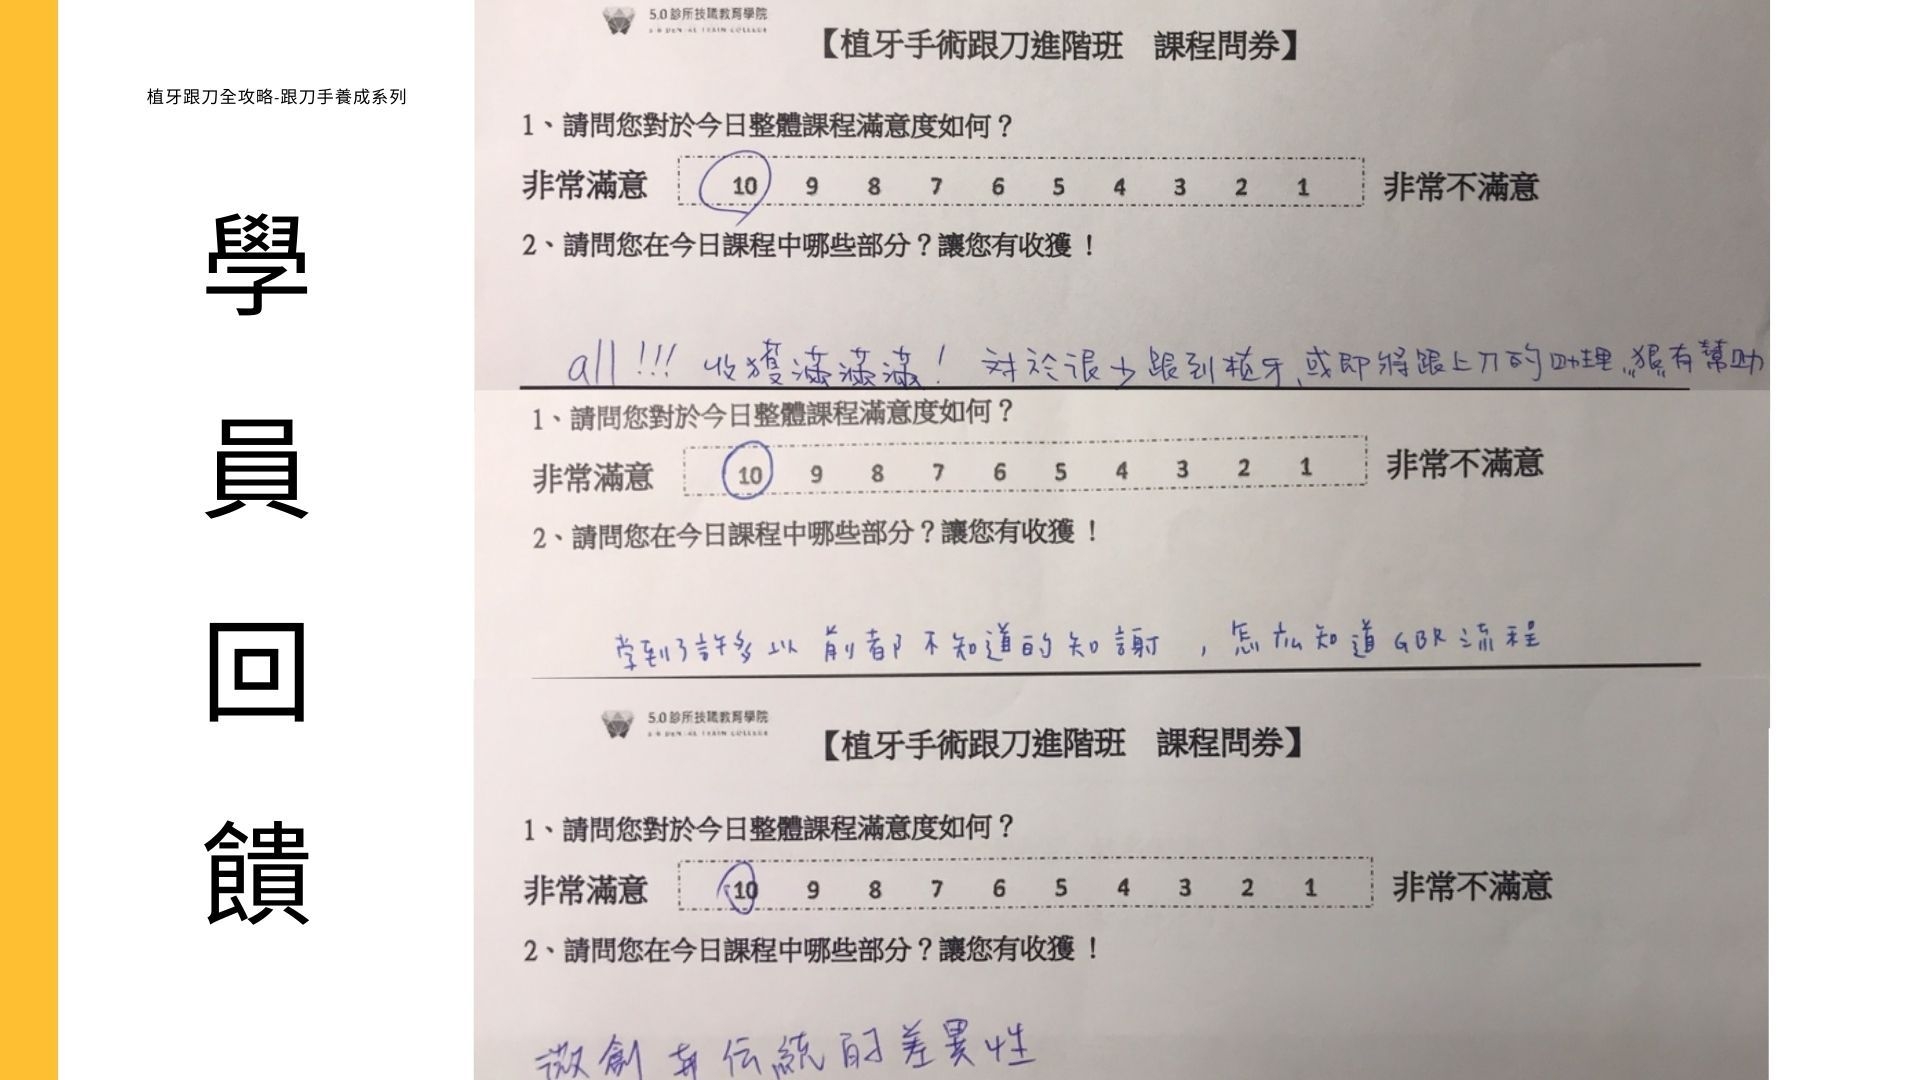 植牙跟刀全攻略-跟刀手養成系列
學
員
回
饋
5.0診所技職教育學院
5·0 DENTAL TRAIN COLLEGE
【植牙手術跟刀進階班　課程問券】
1、請問您對於今日整體課程滿意度如何？
非常滿意 10 9 8 7 6 5 4 3 2 1 非常不滿意
2、請問您在今日課程中哪些部分？讓您有收獲！
all!!! 收獲滿滿滿！ 对於很少跟到植牙、或即將跟上刀的助理，狠有幫助
1、請問您對於今日整體課程滿意度如何？
非常滿意 10 9 8 7 6 5 4 3 2 1 非常不滿意
2、請問您在今日課程中哪些部分？讓您有收獲！
学到了許多以前都不知道的知識，怎么知道GBR流程
5.0診所技職教育學院
5·0 DENTAL TRAIN COLLEGE
【植牙手術跟刀進階班　課程問券】
1、請問您對於今日整體課程滿意度如何？
非常滿意 10 9 8 7 6 5 4 3 2 1 非常不滿意
2、請問您在今日課程中哪些部分？讓您有收獲！
微創与伝統的差異性